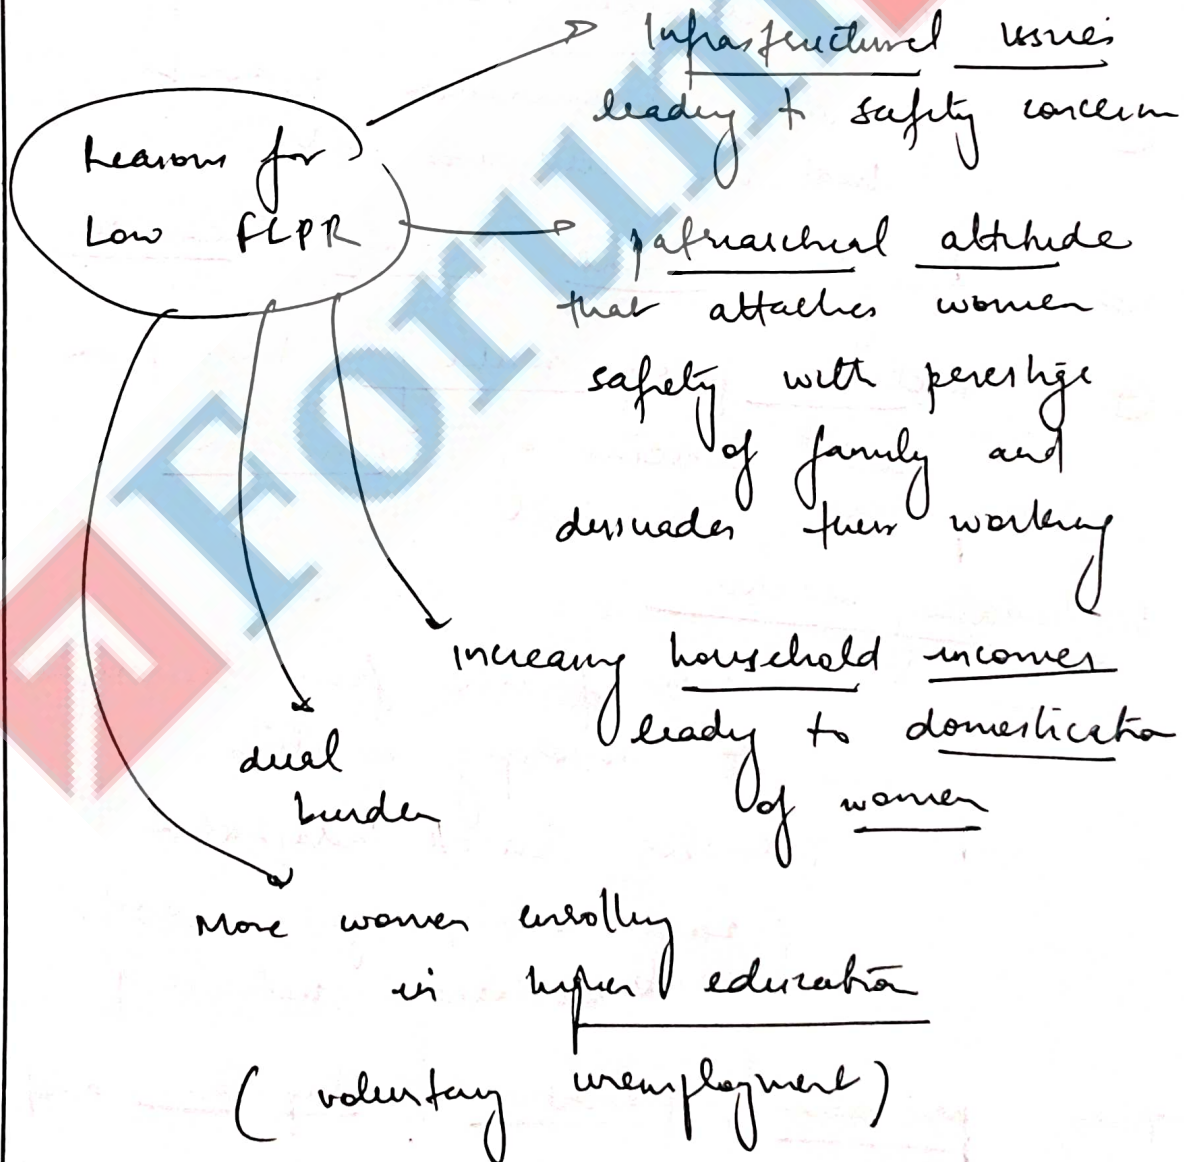 Reasons for
Low FLPR
Infrastructural issues
leading to safety concern
patriarchal attitude
that attaches women
safety with prestige
of family and
dissuades their working
increasing household incomes
leading to domestication
of women
dual
burden
More women enrolling
in higher education
(voluntary unemployment)
Forum